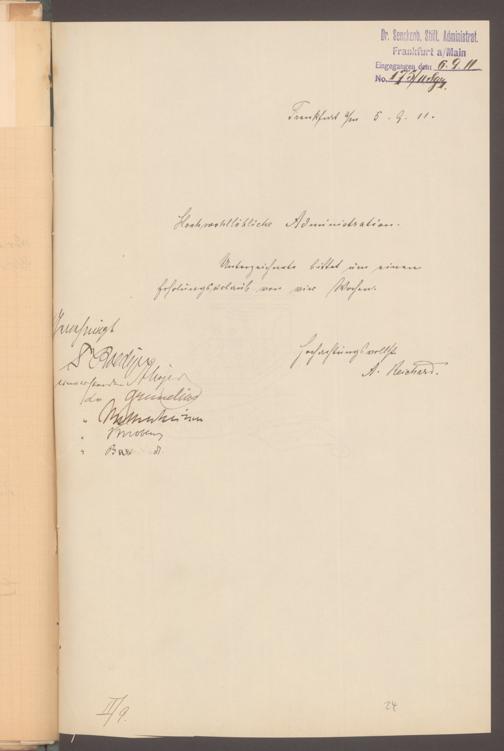 Dr. Senckenb. Stift. Administrat.
Frankfurt a/Main
Eingegangen den 6.9.11
No.
Frankfurt a/m 5.9.11.
Hochwohllöbliche Administration.
Unterzeichnete bittet um einen
Erholungsurlaub von vier Wochen.
Hochachtungsvollst
A. Reichard.
Genehmigt
Dr Roediger
einverstanden
do
"
"
"
II/9.
24